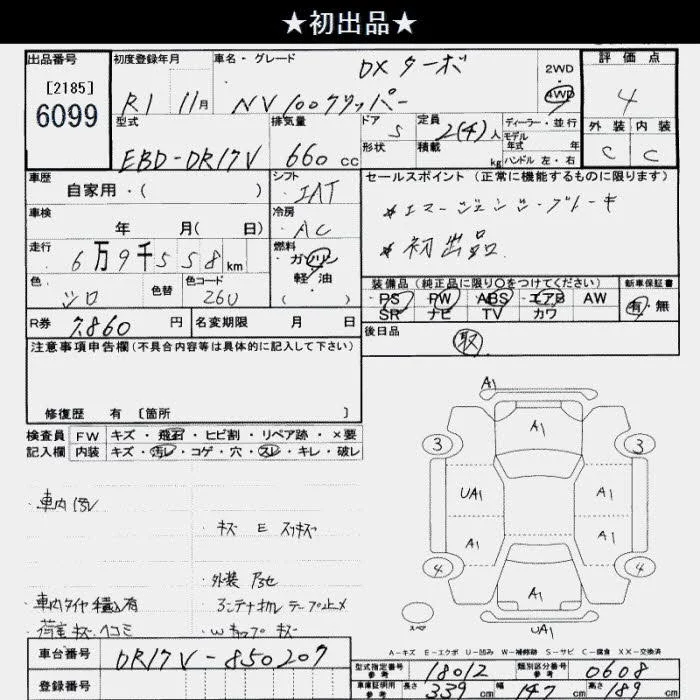 ★初出品★
出品番号
[2185]
6099
初度登録年月
R1 11月
車名・グレード
DXターボ
NV100クリッパー
2WD
4WD
評価点
4
外装 内装
C C
型式
EBD-DR17V
排気量
660 cc
ドア
5
形状
定員
2(4)人
積載
kg
ディーラー・並行
モデル
年式 年
ハンドル 左・右
車歴
自家用・( )
シフト
IAT
セールスポイント(正常に機能するものに限ります)
*エマージェンシーブレーキ
*初出品
車検
年 月( 日)
冷房
AC
走行
6万9千558km
燃料
ガソリン
軽・油
( )
色
シロ
色替
色コード
26U
装備品(純正品に限り○をつけてください)
PS PW ABS エアB AW
SR ナビ TV カワ
新車保証書
有・無
R券
7,860 円
名変期限 月 日
後日品
取
注意事項申告欄(不具合内容等は具体的に記入して下さい)
修復歴 有 [箇所 ]
検査員
記入欄
FW キズ・飛石・ヒビ割・リペア跡・×要
内装 キズ・汚レ・コゲ・穴・スレ・キレ・破レ
・車内汚レ
・キズ E スリキズ
・外装 色セ
・車内タイヤ積込有
・荷室キズ・ヘコミ
A1
A1
3
3
UA1
A1
A1
A1
4
4
A1
スペア
UA1
A-キズ E-エクボ U-凹み W-補修跡 S-サビ C-腐食 XX-交換済
車台番号
DR17V-850207
登録番号
型式指定番号
参考
18012
類別区分番号
参考
0608
車庫証明用
参考
長さ 339 cm
幅 147 cm
高さ 189 cm